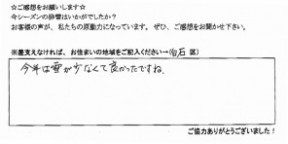 ☆ご感想をお願いします☆
今シーズンの除雪はいかがでしたか？
お客様の声が、私たちの原動力になっています。ぜひ、ご感想をお聞かせ下さい。
※差支えなければ、お住まいの地域をご記入ください→(白石 区)
今年は雪が少なくて良かったですね。
ご協力ありがとうございました！